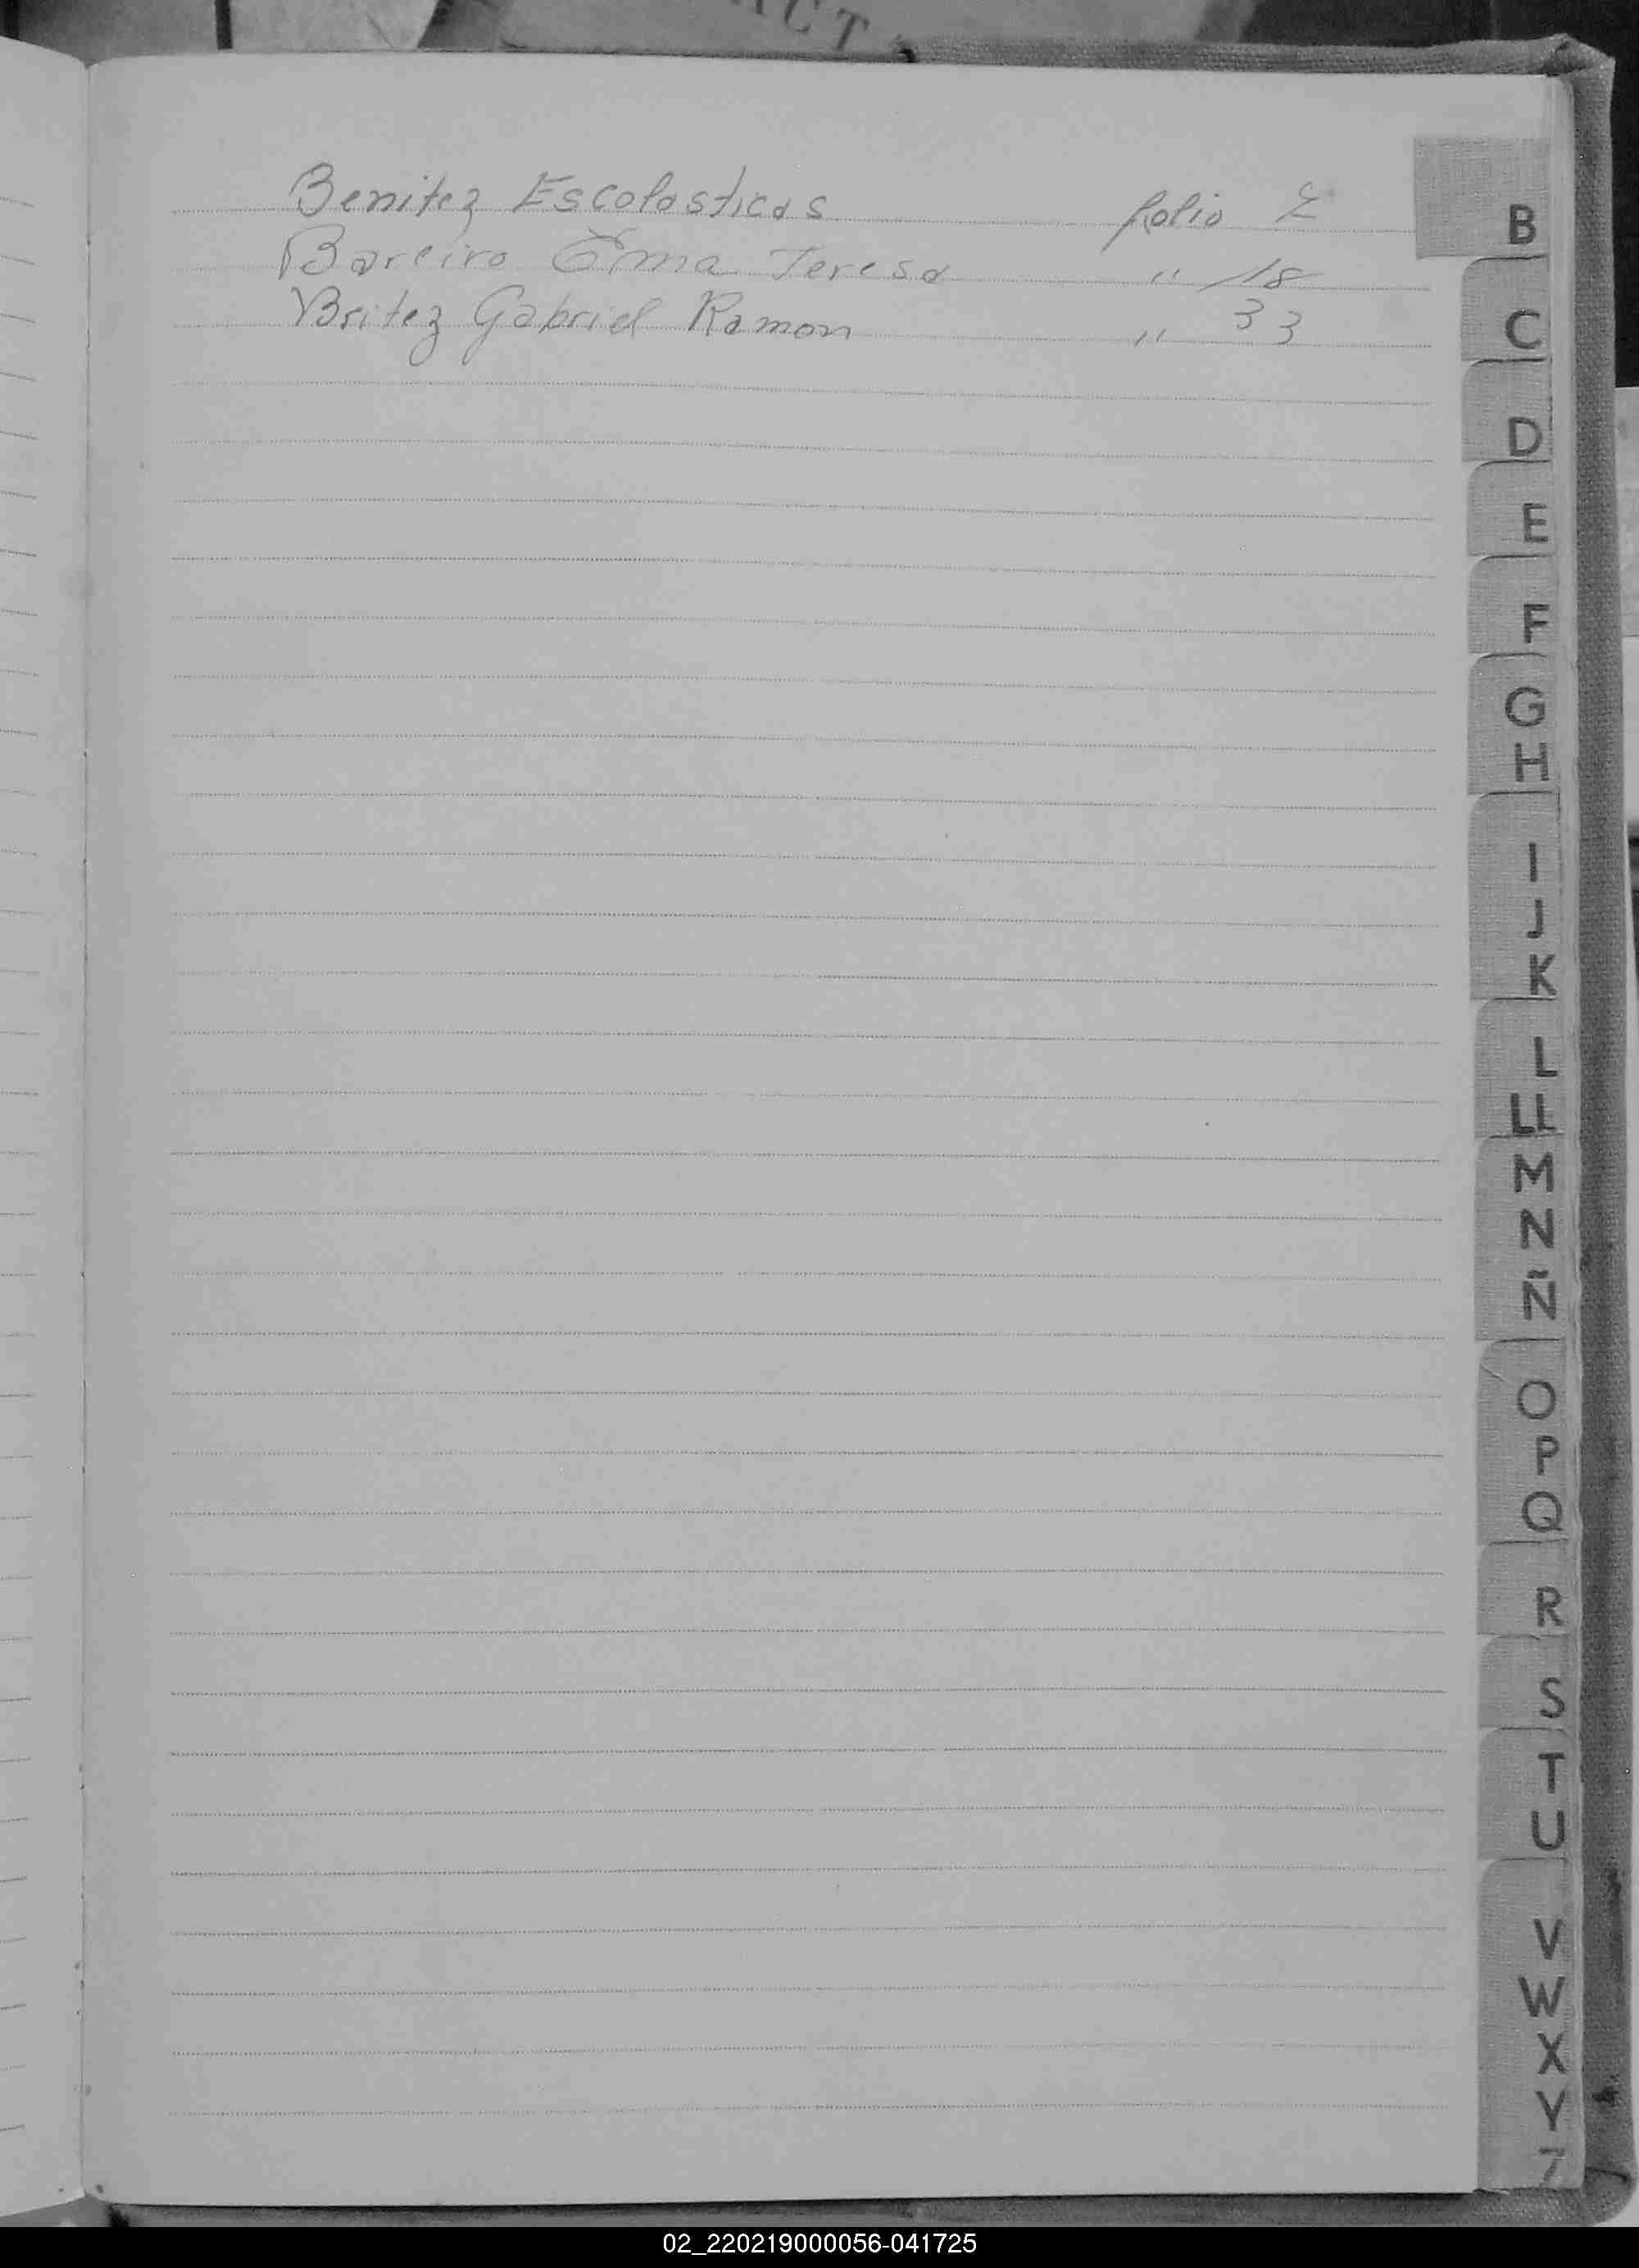 ACT
Benitez Escolasticas folio 2
Bareiro Ema Teresa " 18
Britez Gabriel Ramon " 33
B
C
D
E
F
G
H
I
J
K
L
LL
M
N
Ñ
O
P
Q
R
S
T
U
V
W
X
Y
Z
02_220219000056-041725